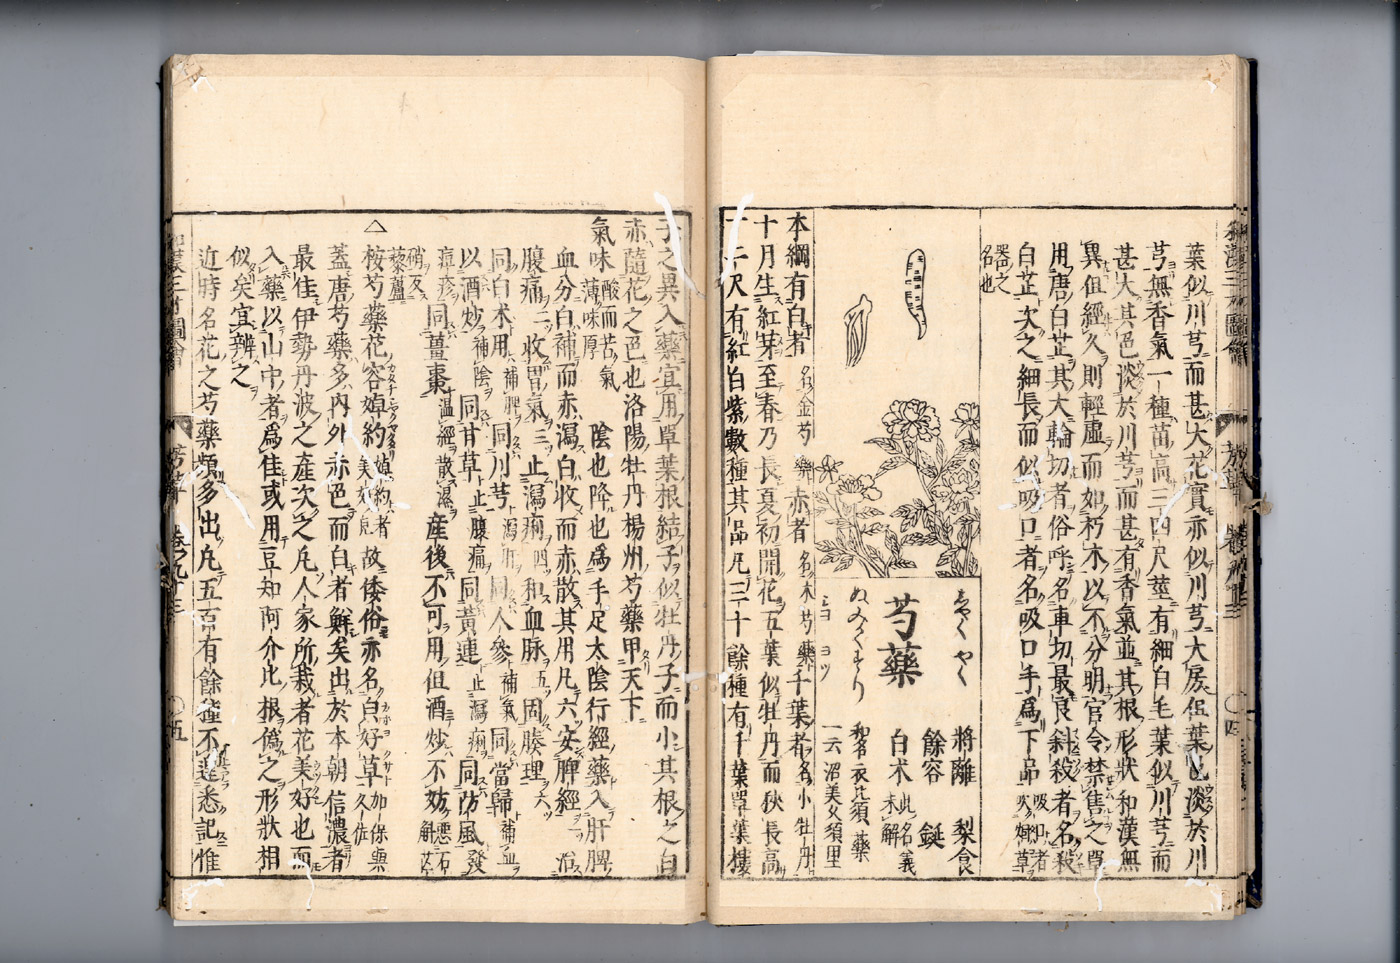 葉似川芎而甚大花實亦似川芎大房但葉色淡於川
芎無香氣一種苗高三四尺莖有細白毛葉似川芎而
甚大其色淡於川芎而甚有香氣並其根形狀和漢無
異但經久則輕虛而如朽木以不分明官令禁售之單
用唐白芷其大輪切者俗呼名車切最良斜殺者名殺
白芷次之細長而似吸口者名吸口手爲下品
器之
名也
芍藥
しやくやく
ぬみくすり
將離 梨食
餘容 鋋
白朮 此名義未解
和名衣比須藥
一云沼美久須里
本綱有白者名金芍藥赤者名木芍藥千葉者名小牡丹
十月生紅芽至春乃長夏初開花五葉似牡丹而狹長高
一二尺有紅白紫數種其品凡三十餘種有千葉單葉樓
子之異入藥宜用單葉根結子似牡丹子而小其根之白
赤隨花之色也洛陽牡丹楊州芍藥甲天下
氣味 酸而苦氣薄味厚 陰也降也爲手足太陰行經藥入肝脾
血分白補而赤瀉白收而赤散其用凡六安脾經一 治
腹痛二收胃氣三止瀉痢四和血脉五固腠理六
同白朮用補脾同川芎瀉肝同人參補氣同當歸補血
以酒炒補陰同甘草止腹痛同黃連止瀉痢同防風發
痘疹同薑棗溫經散濕產後不可用但酒炒不妨惡石斛芒
硝反藜蘆
△桉芍藥花容婥約婥約者美好貌故倭俗亦名白好草加保與久佐
蓋唐芍藥多內外赤色而白者鮮矣出於本朝信濃者
最佳伊勢丹波之產次之凡人家所栽者花美好也而
入藥以山中者爲佳或用豆知阿介比根僞之形狀相
似矣宜辨之
近時名花之芍藥頗多出凡五百有餘種不遑悉記惟